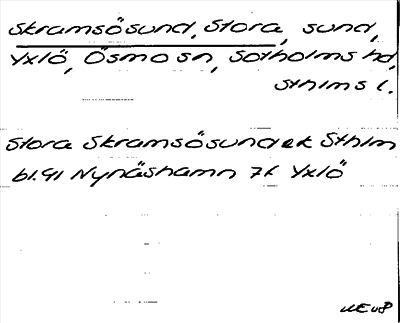 Skramsösund, Stora, sund,
Yxlö, Ösmo sn, Sotholms hd,
Sthlms l.
Stora Skramsösund ek Sthlm
bl. 91 Nynäshamn 7k Yxlö